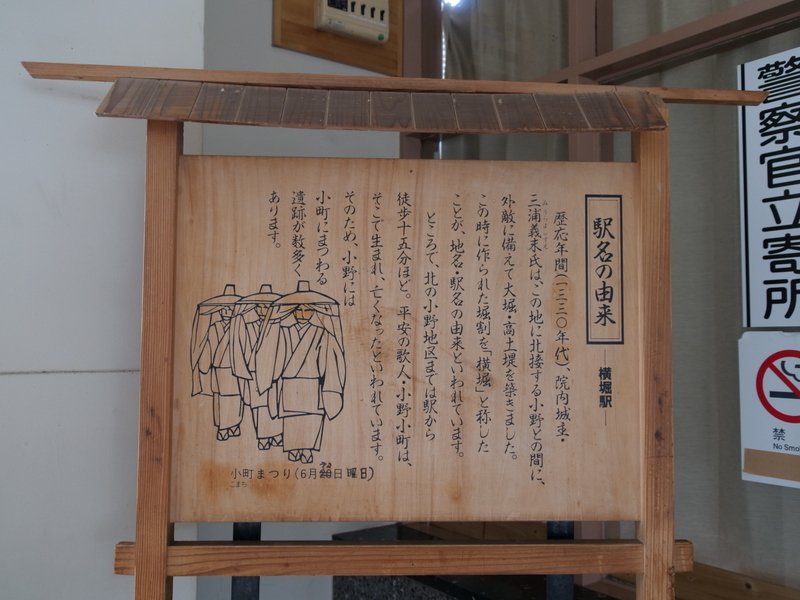 駅名の由来
―横堀駅―
歴応年間(一三三〇年代)、院内城主・
三浦義末氏は、この地に北接する小野との間に、
外敵に備えて大堀・高土堤を築きました。
この時に作られた堀割を「横堀」と称した
ことが、地名・駅名の由来といわれています。
ところで、北の小野地区までは駅から
徒歩十五分ほど。平安の歌人・小野小町は、
そこで生まれ、亡くなったといわれています。
そのため、小野には
小町にまつわる
遺跡が数多く
あります。
小町まつり(6月 日曜日)
こまち
警察官立寄所
禁
No Smo